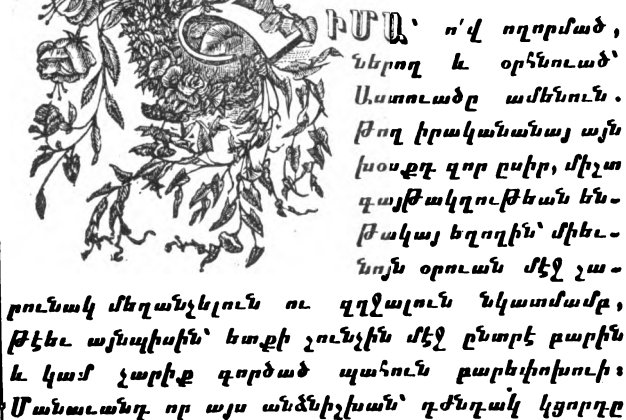 ԻՄԱ՝ ո՛վ ողորմած,
ներող և օրհնուած՝
Աստուածը ամենուն.
Թող իրականանայ այն
խօսքդ զոր ըսիր, միշտ
գայթակղութեան են-
թակայ եղողին՝ միեւ-
նոյն օրուան մէջ շա-
րունակ մեղանչելուն ու զղջալուն նկատմամբ,
թէեւ այնպիսին՝ ետքի շունչին մէջ ընտրէ բարին
և կամ չարիք գործած պահուն բարեփոխուի։
Մանաւանդ որ այս անձնիշխան՝ դժնդակ կցորդը